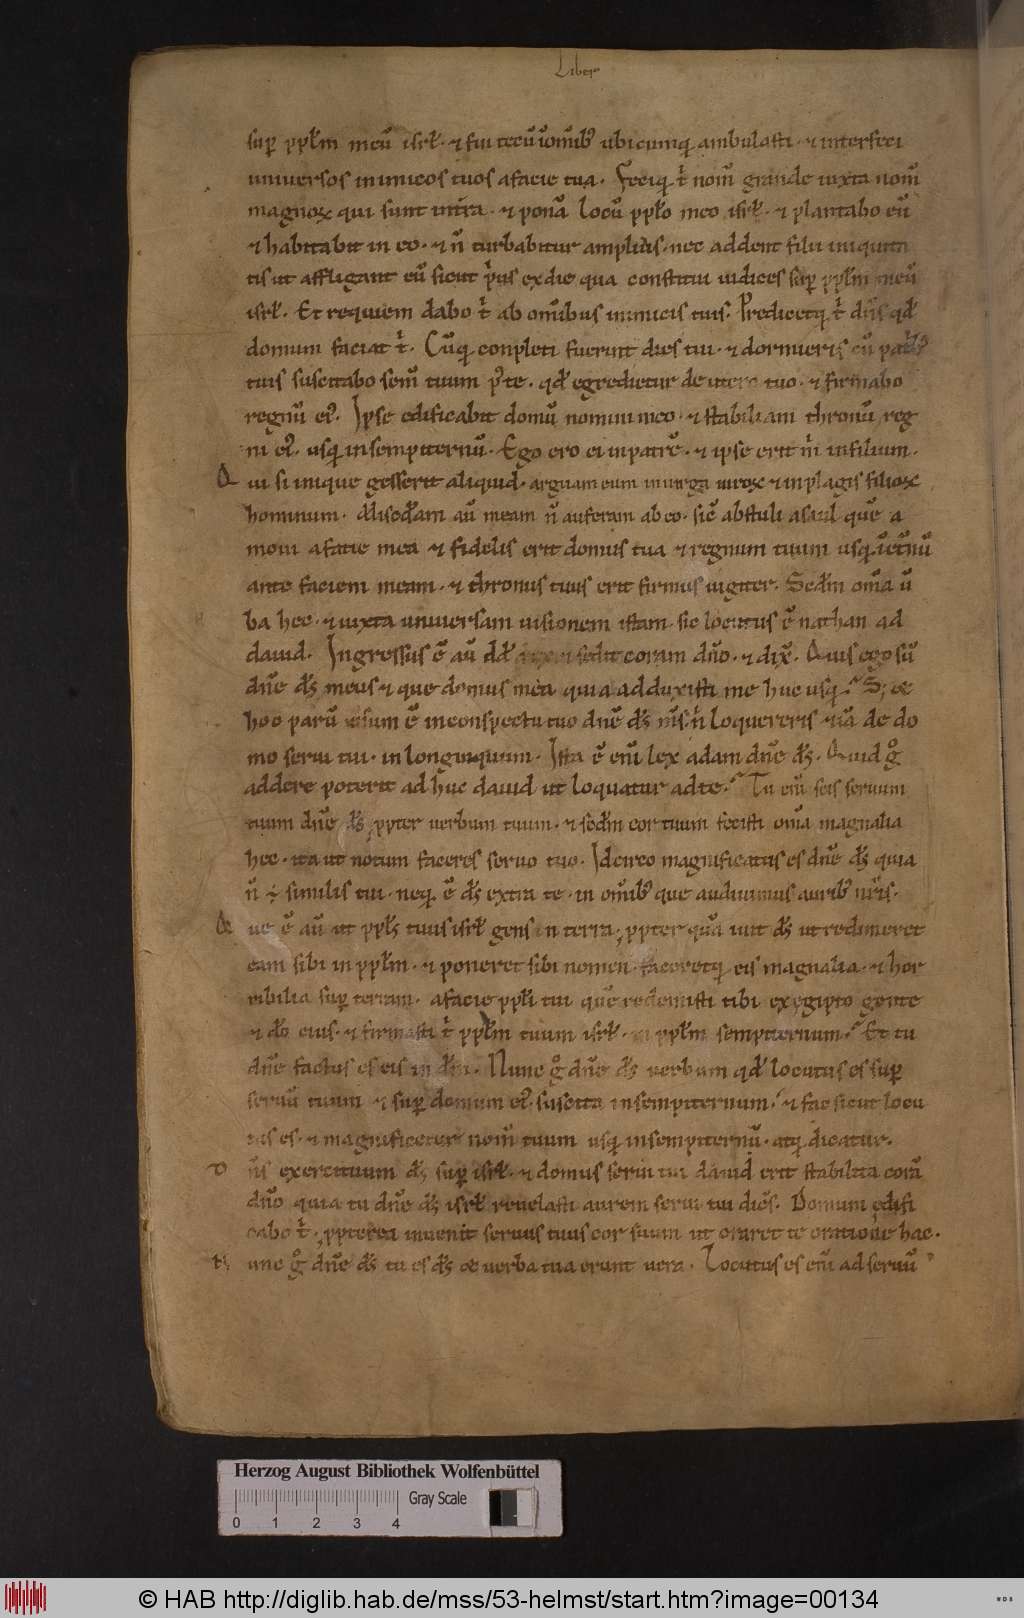 Liber
sup pplm meū isrl. ⁊ fui tecū ī omīb; ubicumq; ambulasti. ⁊ interfeci
universos inimicos tuos a facie tua. Feciq; t̄ nom̄ grande iuxta nom̄
magnoꝝ qui sunt in tr̄a. ⁊ ponā locū pplo meo isrl. ⁊ plantabo eū
⁊ habitabit in eo. ⁊ ñ turbabitur amplius. nec addent filii iniquita
tis ut affligant eū sicut pͥus ex die qua constitui iudices sup pplm meū
isrl. Et requiem dabo t̄ ab om̄ibus inimicis tuis. Predicetq; t̄ dn̄s qđ
domum faciat t̄. Cūq; conpleti fuerint dies tui. ⁊ dormieris cū patͥb;
tuis suscitabo sem̄ tuum p̄ te. qđ egredietur de utero tuo. ⁊ firmabo
regnū ei᾽. Ipse edificabit domū nomini meo. ⁊ stabiliam thronū reg
ni ei᾽. usq; in sempiternū. Ego ero ei in patrē. ⁊ ipse erit m̄ in filium.
Qui si inique gesserit aliquid. arguam eum in uirga uiroꝝ ⁊ in plagis filioꝝ
hominum. Misc̄dam aū meam ñ auferam ab eo. sic̄ abstuli a saul quē a
moui a facie mea ⁊ fidelis erit domus tua ⁊ regnum tuum usq; ī et̄nū
ante faciem meam. ⁊ thronus tuus erit firmus iugiter. Scđm om̄a ū
ba hec. ⁊ iuxta universam uisionem istam. sic locutus ē nathan ad
dauid. Ingressus ē aū dđ rex ⁊ sedit coram dn̄o. ⁊ dix̄. Quis ego sū
dn̄e ds̄ meus ⁊ que domus mea quia adduxisti me huc usq;. S; ⁊
hoc parū uisum ē in conspectu tuo dn̄e ds̄ m̄s ñ loquereris ⁊iā de do
mo serui tui. in longinquum. Ista ē enī lex adam dn̄e ds̄. Quid gͦ
addere poterit ad huc dauid ut loquatur ad te. Tu enī scis seruum
tuum dn̄e ds̄ ꝓpter uerbum tuum. ⁊ scđm cor tuum fecisti om̄a magnalia
hec. ita ut notum faceres seruo tuo. Idcirco magnificatus es dn̄e ds̄ quia
ñ ÷ similis tui. neq; ē ds̄ extra te. in om̄ib; que audiuimus aurib; nr̄is.
Que ē aū ut ppls tuus isrl gens in terra, ꝓpter quā iuit ds̄ ut redimeret
eam sibi in pplm. ⁊ poneret sibi nomen. faceretq; eis magnalia. ⁊ hor
ribilia sup terram. a facie ppli tui quē redemisti tibi ex egipto gente
⁊ dō eius. ⁊ firmasti t̄ pplm tuum isrl. in pplm sempiternum. Et tu
dn̄e factus es eis in dm̄. Nunc gͦ dn̄e ds̄ uerbum qđ locutus es sup
seruū tuum ⁊ sup domum ei᾽. suscita in sempiternum. ⁊ fac sicut locu
tus es. ⁊ magnificetur nom̄ tuum usq; in sempiternū. atq; dicatur.
Dn̄s exercituum ds̄ sup isrl. ⁊ domus serui tui dauid erit stabilita corā
dn̄o quia tu dn̄e ds̄ isrl reuelasti aurem serui tui dic̄s. Domum edifi
cabo t̄. ꝓpterea inuenit seruus tuus cor suum ut oraret te oratione hac.
Nunc gͦ dn̄e ds̄ tu es ds̄ ⁊ uerba tua erunt uera. Locutus es enī ad seruū
Herzog August Bibliothek Wolfenbüttel
Gray Scale
0 1 2 3 4
© HAB http://diglib.hab.de/mss/53-helmst/start.htm?image=00134